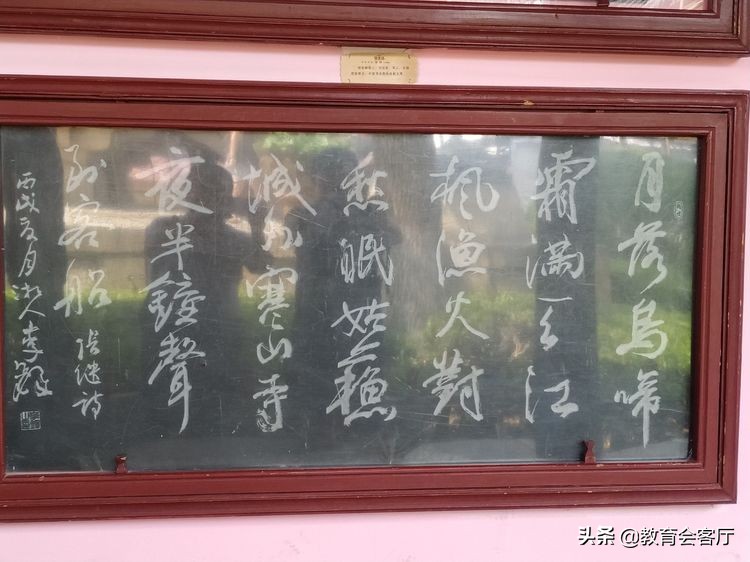 月落乌啼
霜满天江
枫渔火对
愁眠姑蘇
城外寒山寺
夜半鐘聲
到客船
张继诗
丙戌夏月
李
头条 @教育会客厅